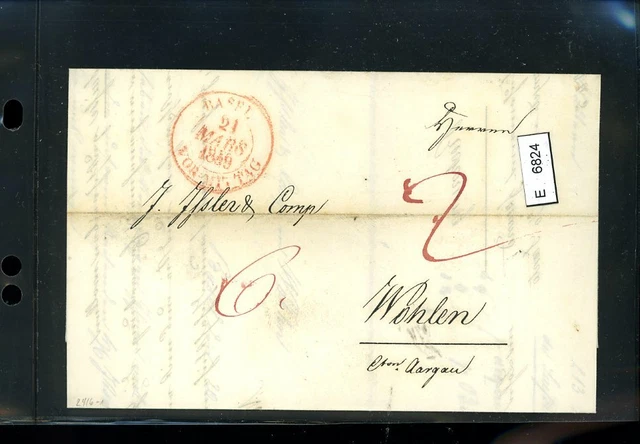 BASEL
21
MARS
1849
VORMITTAG
Herren
E 6824
J. Isler & Comp
2
6.
Wohlen
Cton. Aargau